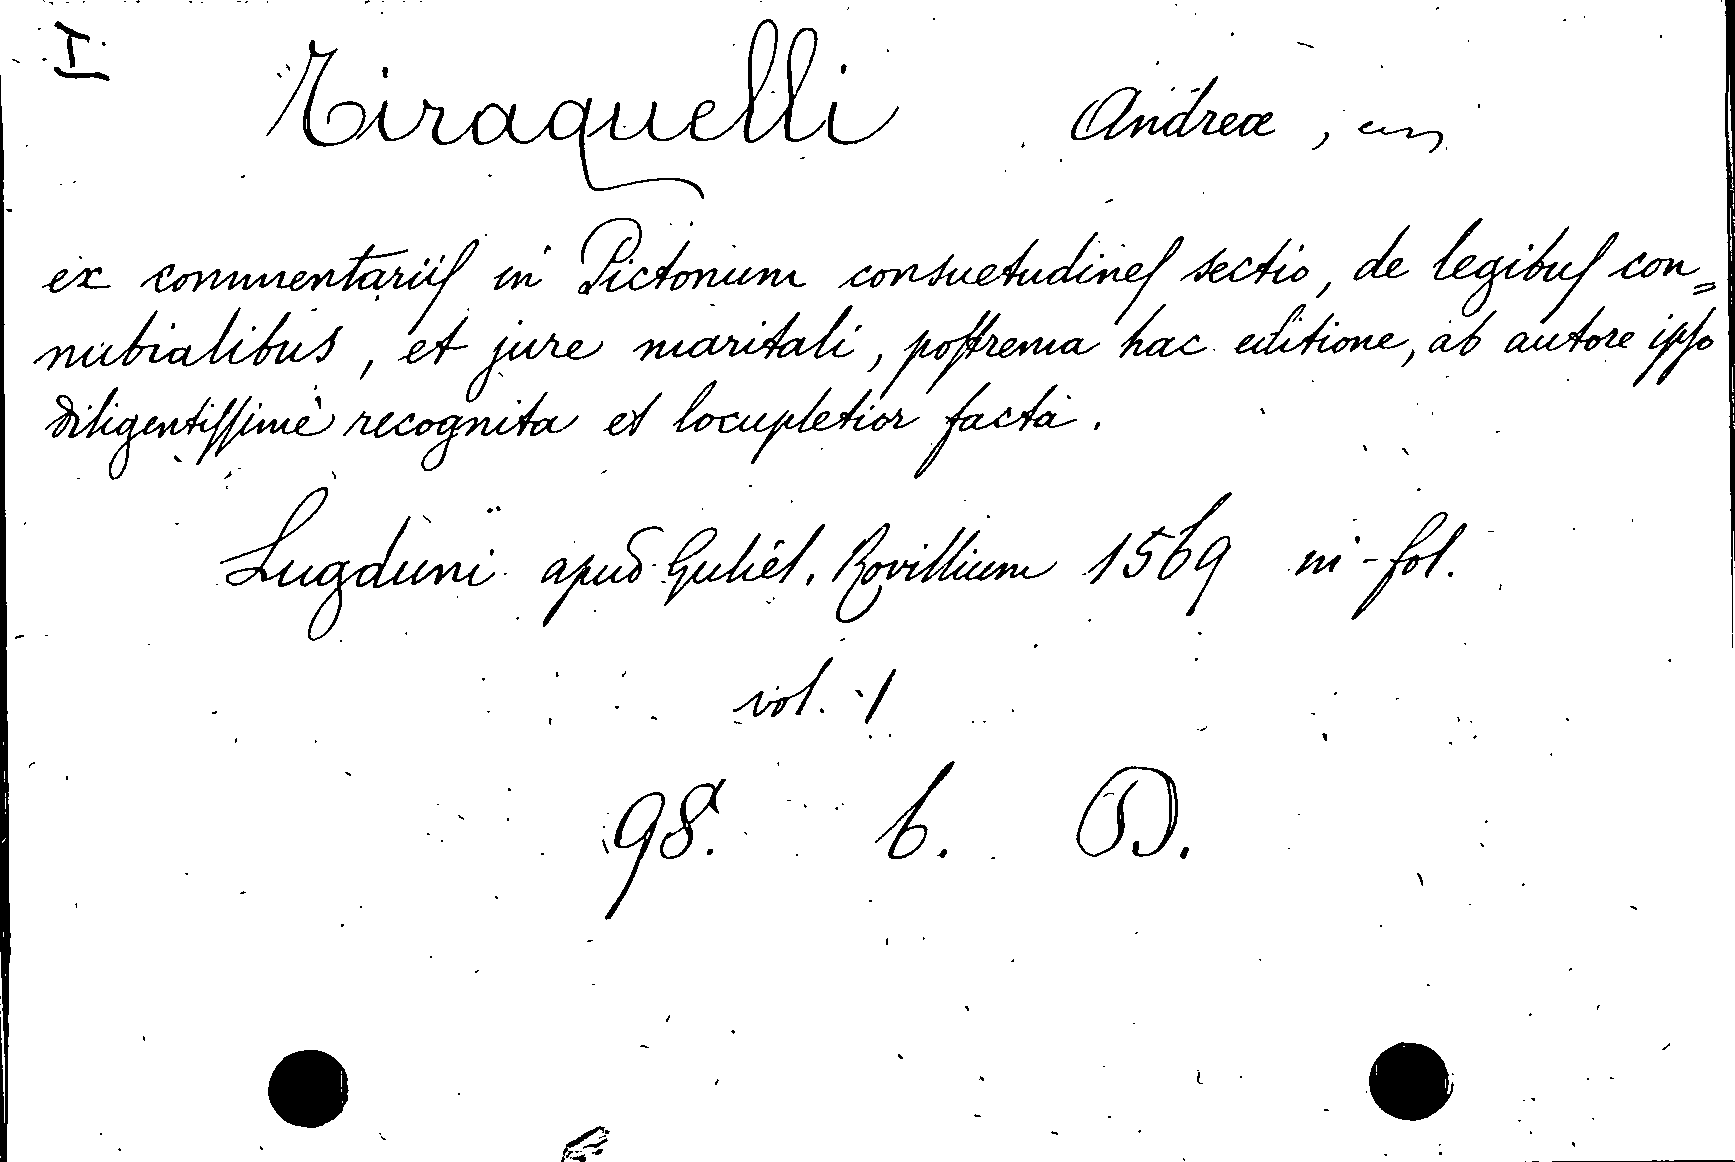 I
Tiraquelli Andreæ,
ex commentariis in Pictonum consuetudines sectio, de legibus con=
nubialibus, et jure maritali, postrema hac editione, ab autore ipso
diligentissimè recognita et locupletior facta.
Lugduni apud Guliel. Rovillium 1569 in-fol.
vol. 1
98. 6. D.